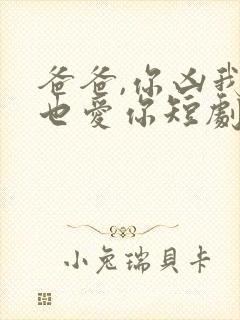 爸爸,你凶我
也愛你短劇
小兔瑞貝卡